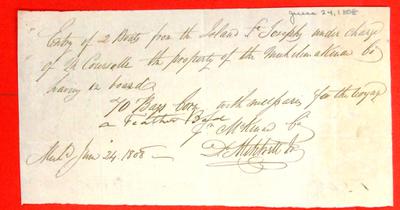 June 24, 1808
Entry of 2 Boats from the Island St. Joseph under charge
of La Courville the property of the Michilimakinac Co
having on board
70 Bags Corn with necessaries for the voyage
a Feather Bed
Jn McKenn
Mack. June 24. 1808 —